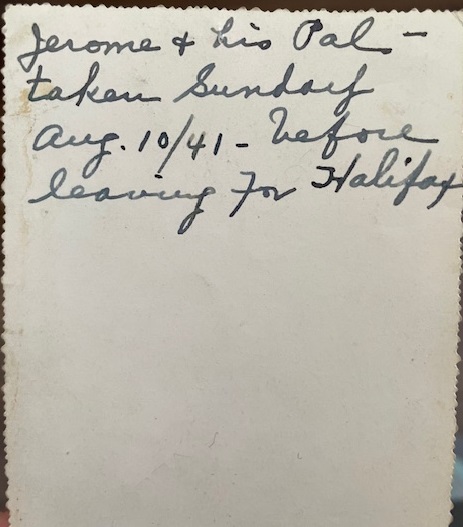 Jerome & his Pal -
taken Sunday
Aug. 10/41 - before
leaving for Halifax